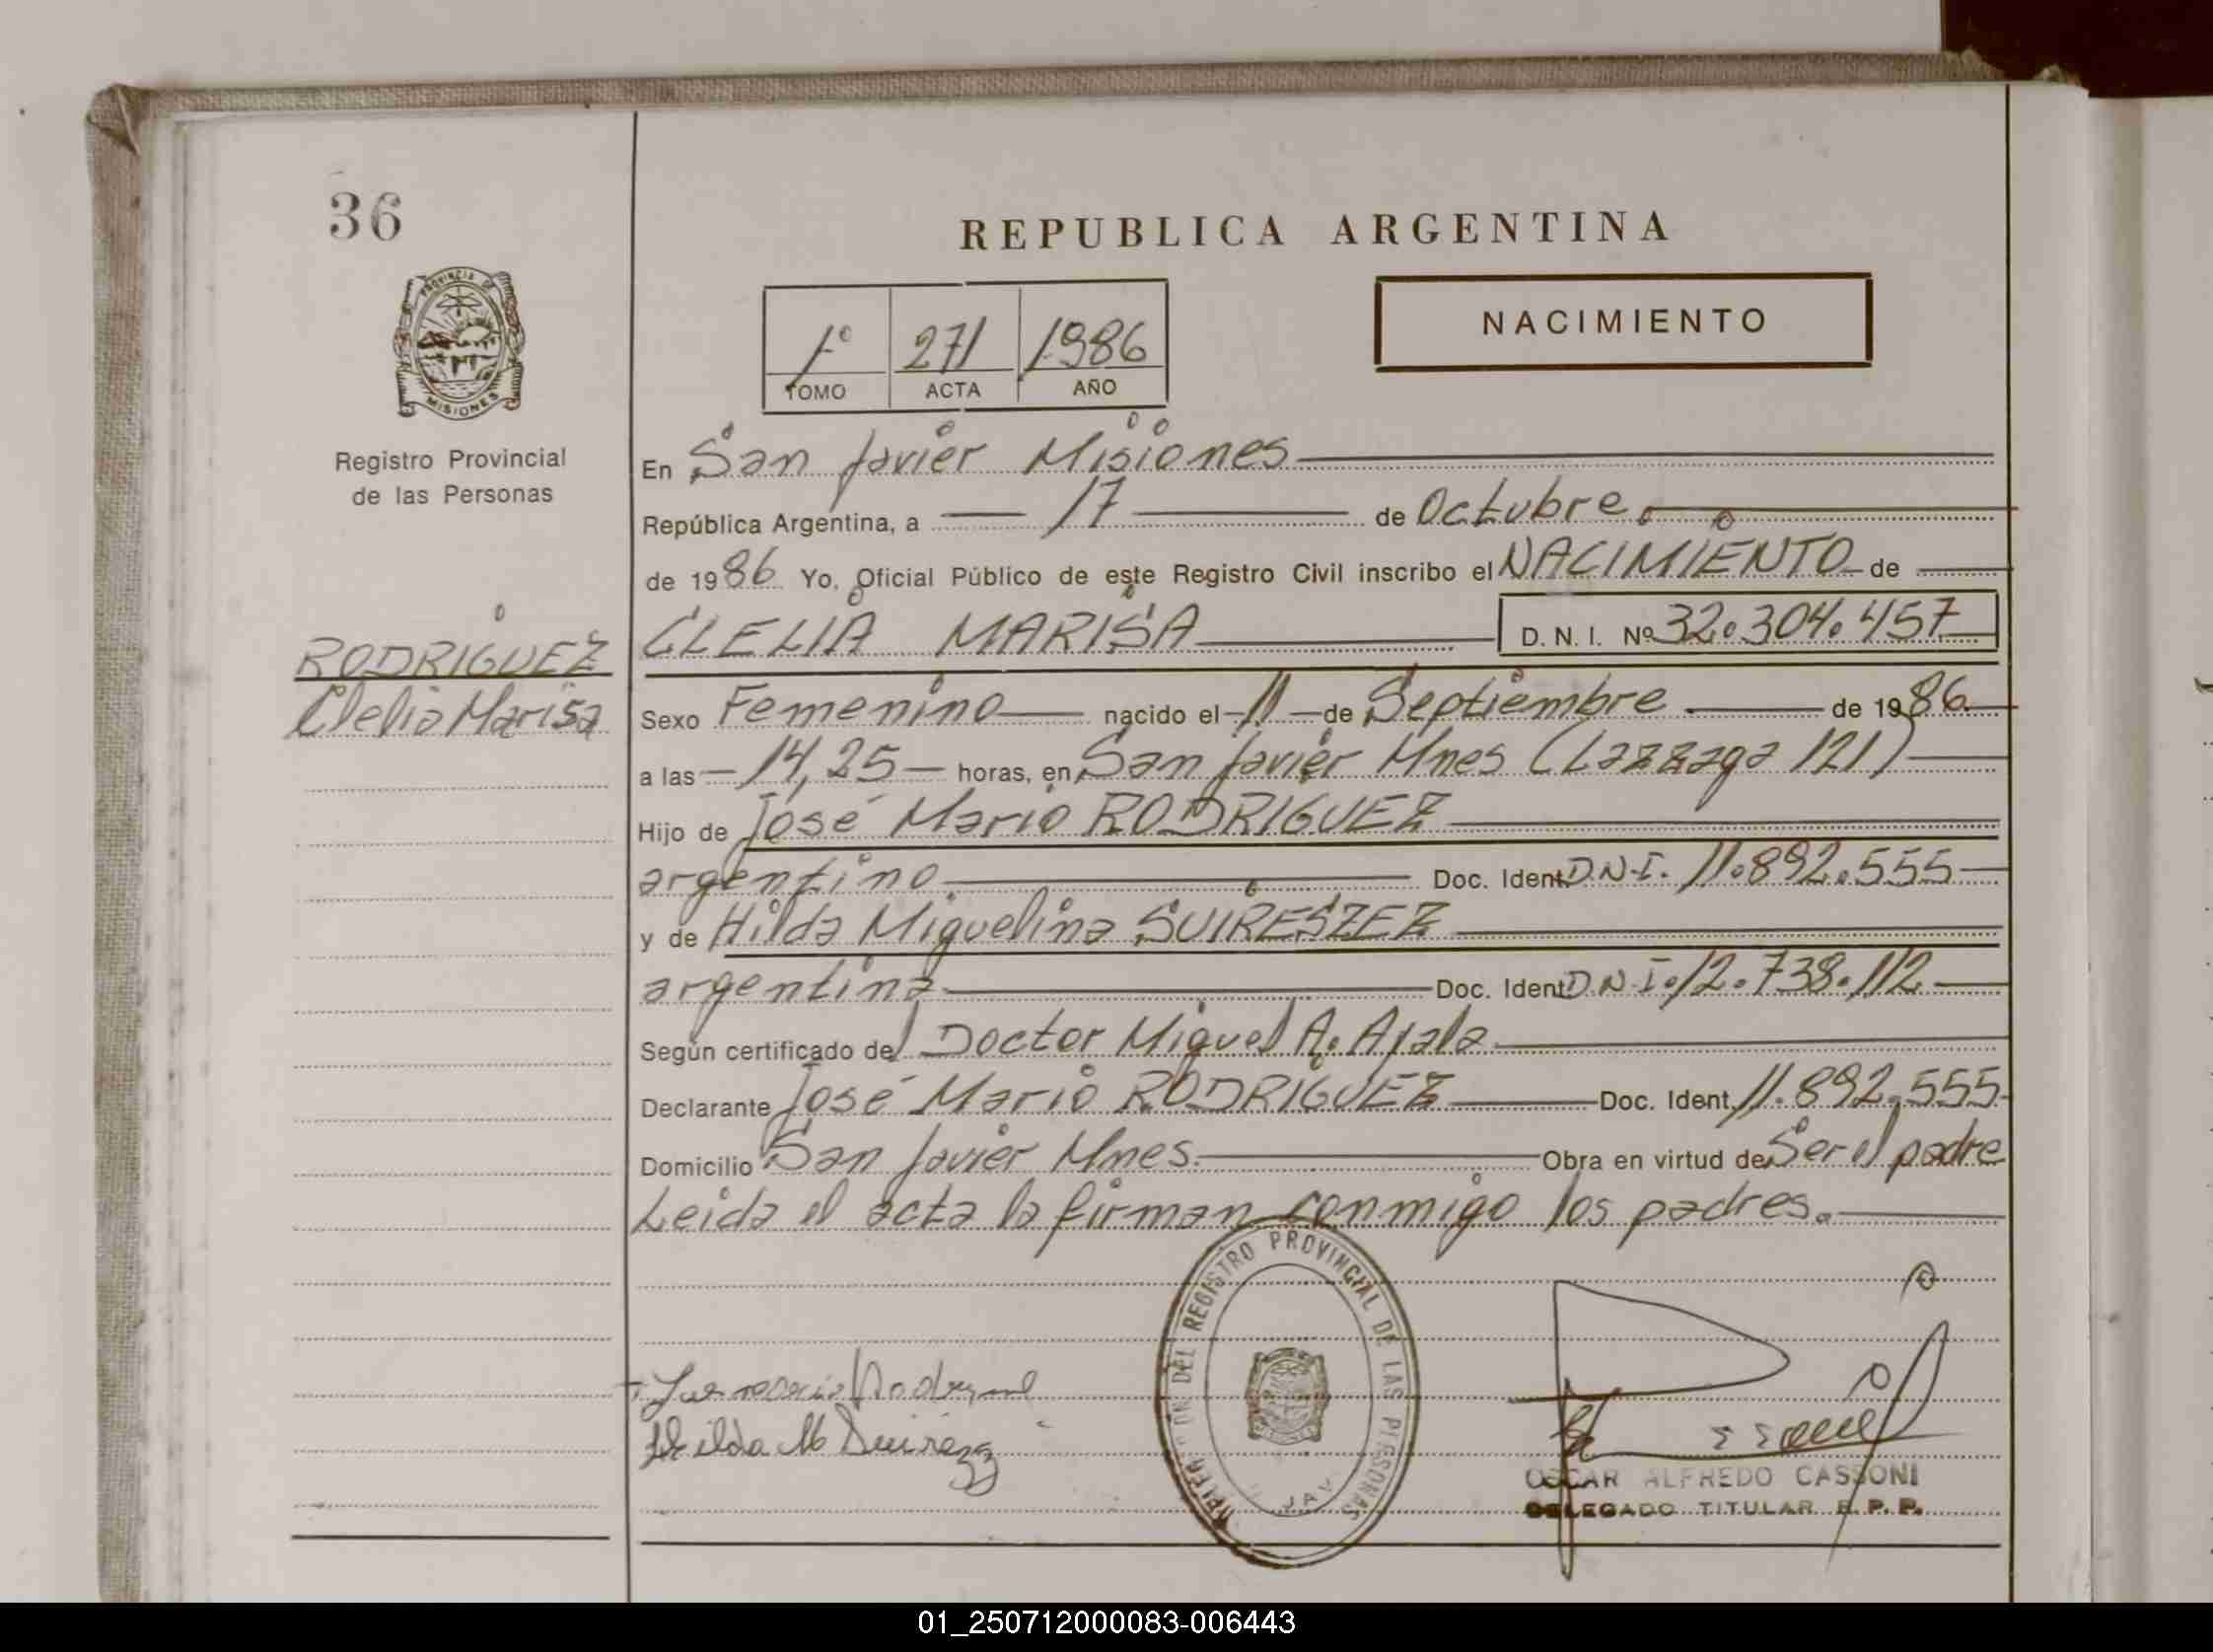 36
REPUBLICA ARGENTINA
NACIMIENTO
1º 271 1986
TOMO ACTA AÑO
PROVINCIA DE
MISIONES
Registro Provincial
de las Personas
En San Javier Misiones
República Argentina, a 17 de Octubre.
de 1986 Yo, Oficial Público de este Registro Civil inscribo el NACIMIENTO de
RODRIGUEZ
Clelia Marisa
CLELIA MARISA D.N.I. Nº 32.304.457
Sexo Femenino nacido el 11 de Septiembre de 1986.
a las 14,25 horas, en San Javier Mnes (Lazzaga 121)
Hijo de José Mario RODRIGUEZ
argentino Doc. Ident. D.N.I. 11.892.555
y de Hilda Miguelina SUIRESZEZ
argentina Doc. Ident. D.N.I. 12.738.112
Según certificado del Doctor Miguel A. Ayala
Declarante José Mario RODRIGUEZ Doc. Ident. 11.892.555
Domicilio San Javier Mnes. Obra en virtud de Ser el padre
Leida el acta la firman conmigo los padres.
DEL REGISTRO PROVINCIAL DE LAS PERSONAS
Hilda M
OSCAR ALFREDO CASSONI
DELEGADO TITULAR R. P. P.
01_250712000083-006443